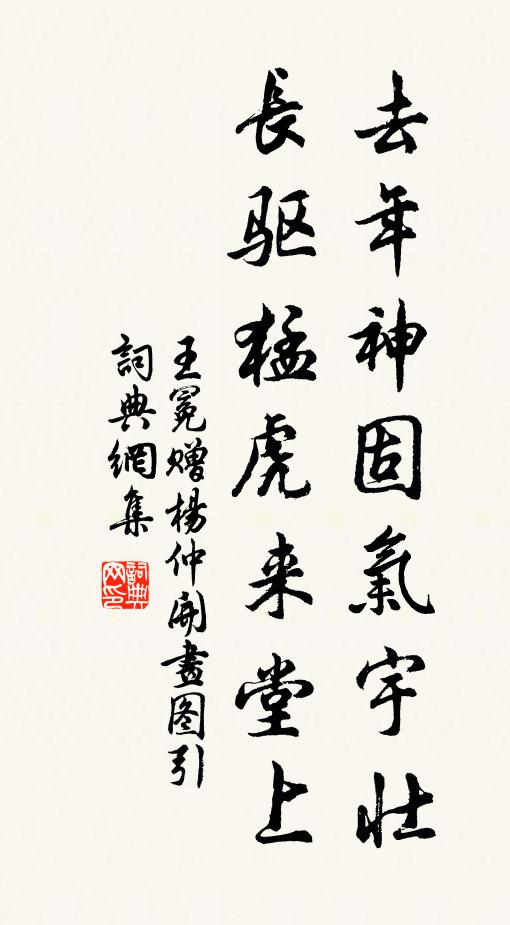 去年神固氣宇壮
長驱猛虎来堂上
王冕赠楊仲開畫图引
詞典網集
詞典网印